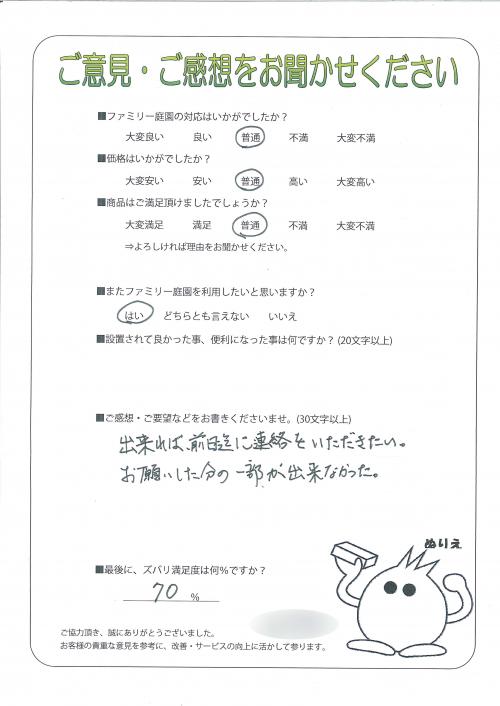 ご意見・ご感想をお聞かせください
■ファミリー庭園の対応はいかがでしたか？
大変良い　良い　普通　不満　大変不満
■価格はいかがでしたか？
大変安い　安い　普通　高い　大変高い
■商品はご満足頂けましたでしょうか？
大変満足　満足　普通　不満　大変不満
⇒よろしければ理由をお聞かせください。
■またファミリー庭園を利用したいと思いますか？
はい　どちらとも言えない　いいえ
■設置されて良かった事、便利になった事は何ですか？(20文字以上)
■ご感想・ご要望などをお書きくださいませ。(30文字以上)
出来れば、前日迄に連絡をいただきたい。
お願いした分の一部が出来なかった。
ぬりえ
■最後に、ズバリ満足度は何％ですか？
70 %
ご協力頂き、誠にありがとうございました。
お客様の貴重な意見を参考に、改善・サービスの向上に活かして参ります。